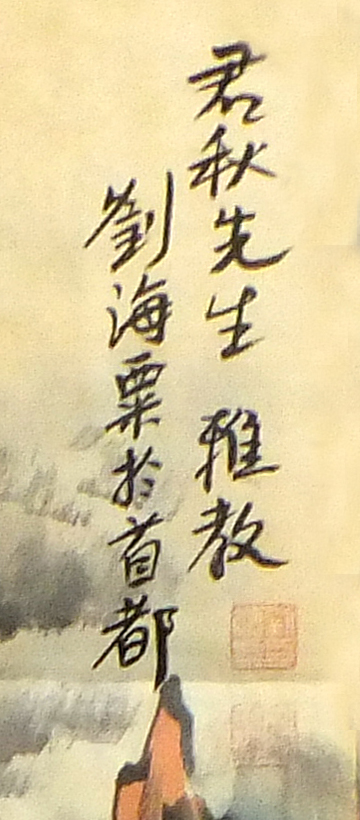 君秋先生 雅教
劉海粟於首都